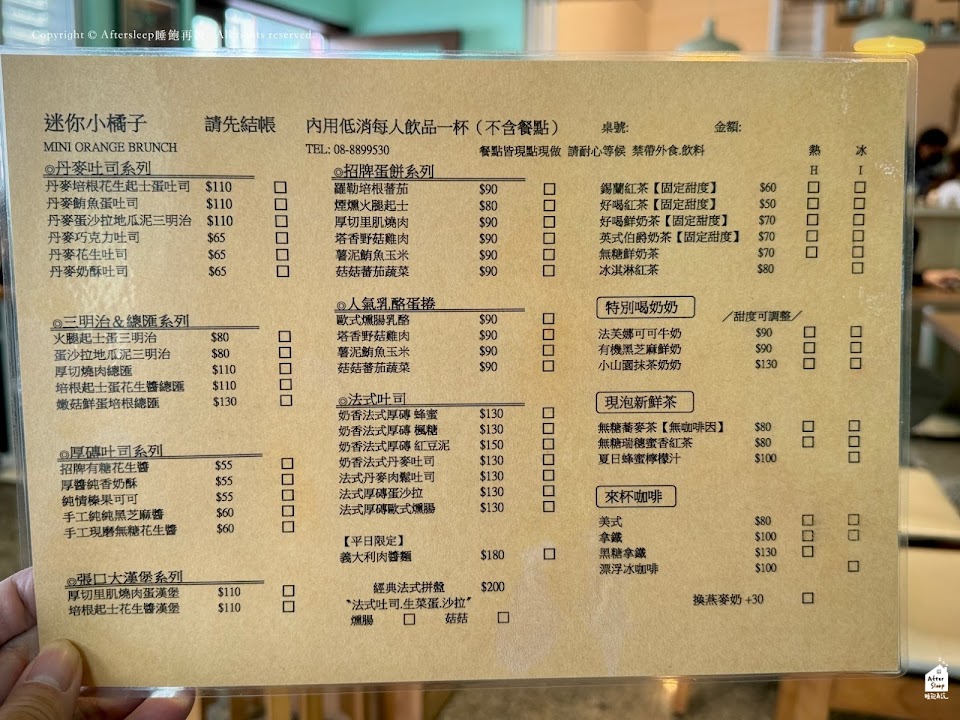 Copyright © Aftersleep睡飽再 All rights reserved.
迷你小橘子 請先結帳 內用低消每人飲品一杯（不含餐點） 桌號: 金額:
MINI ORANGE BRUNCH TEL: 08-8899530 餐點皆現點現做 請耐心等候 禁帶外食.飲料
◎丹麥吐司系列
丹麥培根花生起士蛋吐司 $110 □
丹麥鮪魚蛋吐司 $110 □
丹麥蛋沙拉地瓜泥三明治 $110 □
丹麥巧克力吐司 $65 □
丹麥花生吐司 $65 □
丹麥奶酥吐司 $65 □
◎三明治＆總匯系列
火腿起士蛋三明治 $80 □
蛋沙拉地瓜泥三明治 $80 □
厚切燒肉總匯 $110 □
培根起士蛋花生醬總匯 $110 □
嫩菇鮮蛋培根總匯 $130 □
◎厚磚吐司系列
招牌有糖花生醬 $55 □
厚醬純香奶酥 $55 □
純情榛果可可 $55 □
手工純純黑芝麻醬 $60 □
手工現磨無糖花生醬 $60 □
◎張口大漢堡系列
厚切里肌燒肉蛋漢堡 $110 □
培根起士花生醬漢堡 $110 □
◎招牌蛋餅系列
羅勒培根蕃茄 $90 □
煙燻火腿起士 $80 □
厚切里肌燒肉 $90 □
塔香野菇雞肉 $90 □
薯泥鮪魚玉米 $90 □
菇菇蕃茄蔬菜 $90 □
◎人氣乳酪蛋捲
歐式燻腸乳酪 $90 □
塔香野菇雞肉 $90 □
薯泥鮪魚玉米 $90 □
菇菇蕃茄蔬菜 $90 □
◎法式吐司
奶香法式厚磚 蜂蜜 $130 □
奶香法式厚磚 楓糖 $130 □
奶香法式厚磚 紅豆泥 $150 □
奶香法式丹麥吐司 $130 □
法式丹麥肉鬆吐司 $130 □
法式厚磚蛋沙拉 $130 □
法式厚磚歐式燻腸 $130 □
【平日限定】
義大利肉醬麵 $180 □
經典法式拼盤 $200
〝法式吐司.生菜蛋.沙拉〞
燻腸 □ 菇菇 □
熱 冰
H I
錫蘭紅茶【固定甜度】 $60 □ □
好喝紅茶【固定甜度】 $50 □ □
好喝鮮奶茶【固定甜度】 $70 □ □
英式伯爵奶茶【固定甜度】 $70 □ □
無糖鮮奶茶 $70 □ □
冰淇淋紅茶 $80 □
特別喝奶奶
／甜度可調整／
法芙娜可可牛奶 $90 □ □
有機黑芝麻鮮奶 $90 □ □
小山園抹茶奶奶 $130 □ □
現泡新鮮茶
無糖蕎麥茶【無咖啡因】 $80 □ □
無糖瑞穗蜜香紅茶 $80 □ □
夏日蜂蜜檸檬汁 $100 □
來杯咖啡
美式 $80 □ □
拿鐵 $100 □ □
黑糖拿鐵 $130 □
漂浮冰咖啡 $100 □
換燕麥奶 +30 □
After
Sleep
睡飽再說